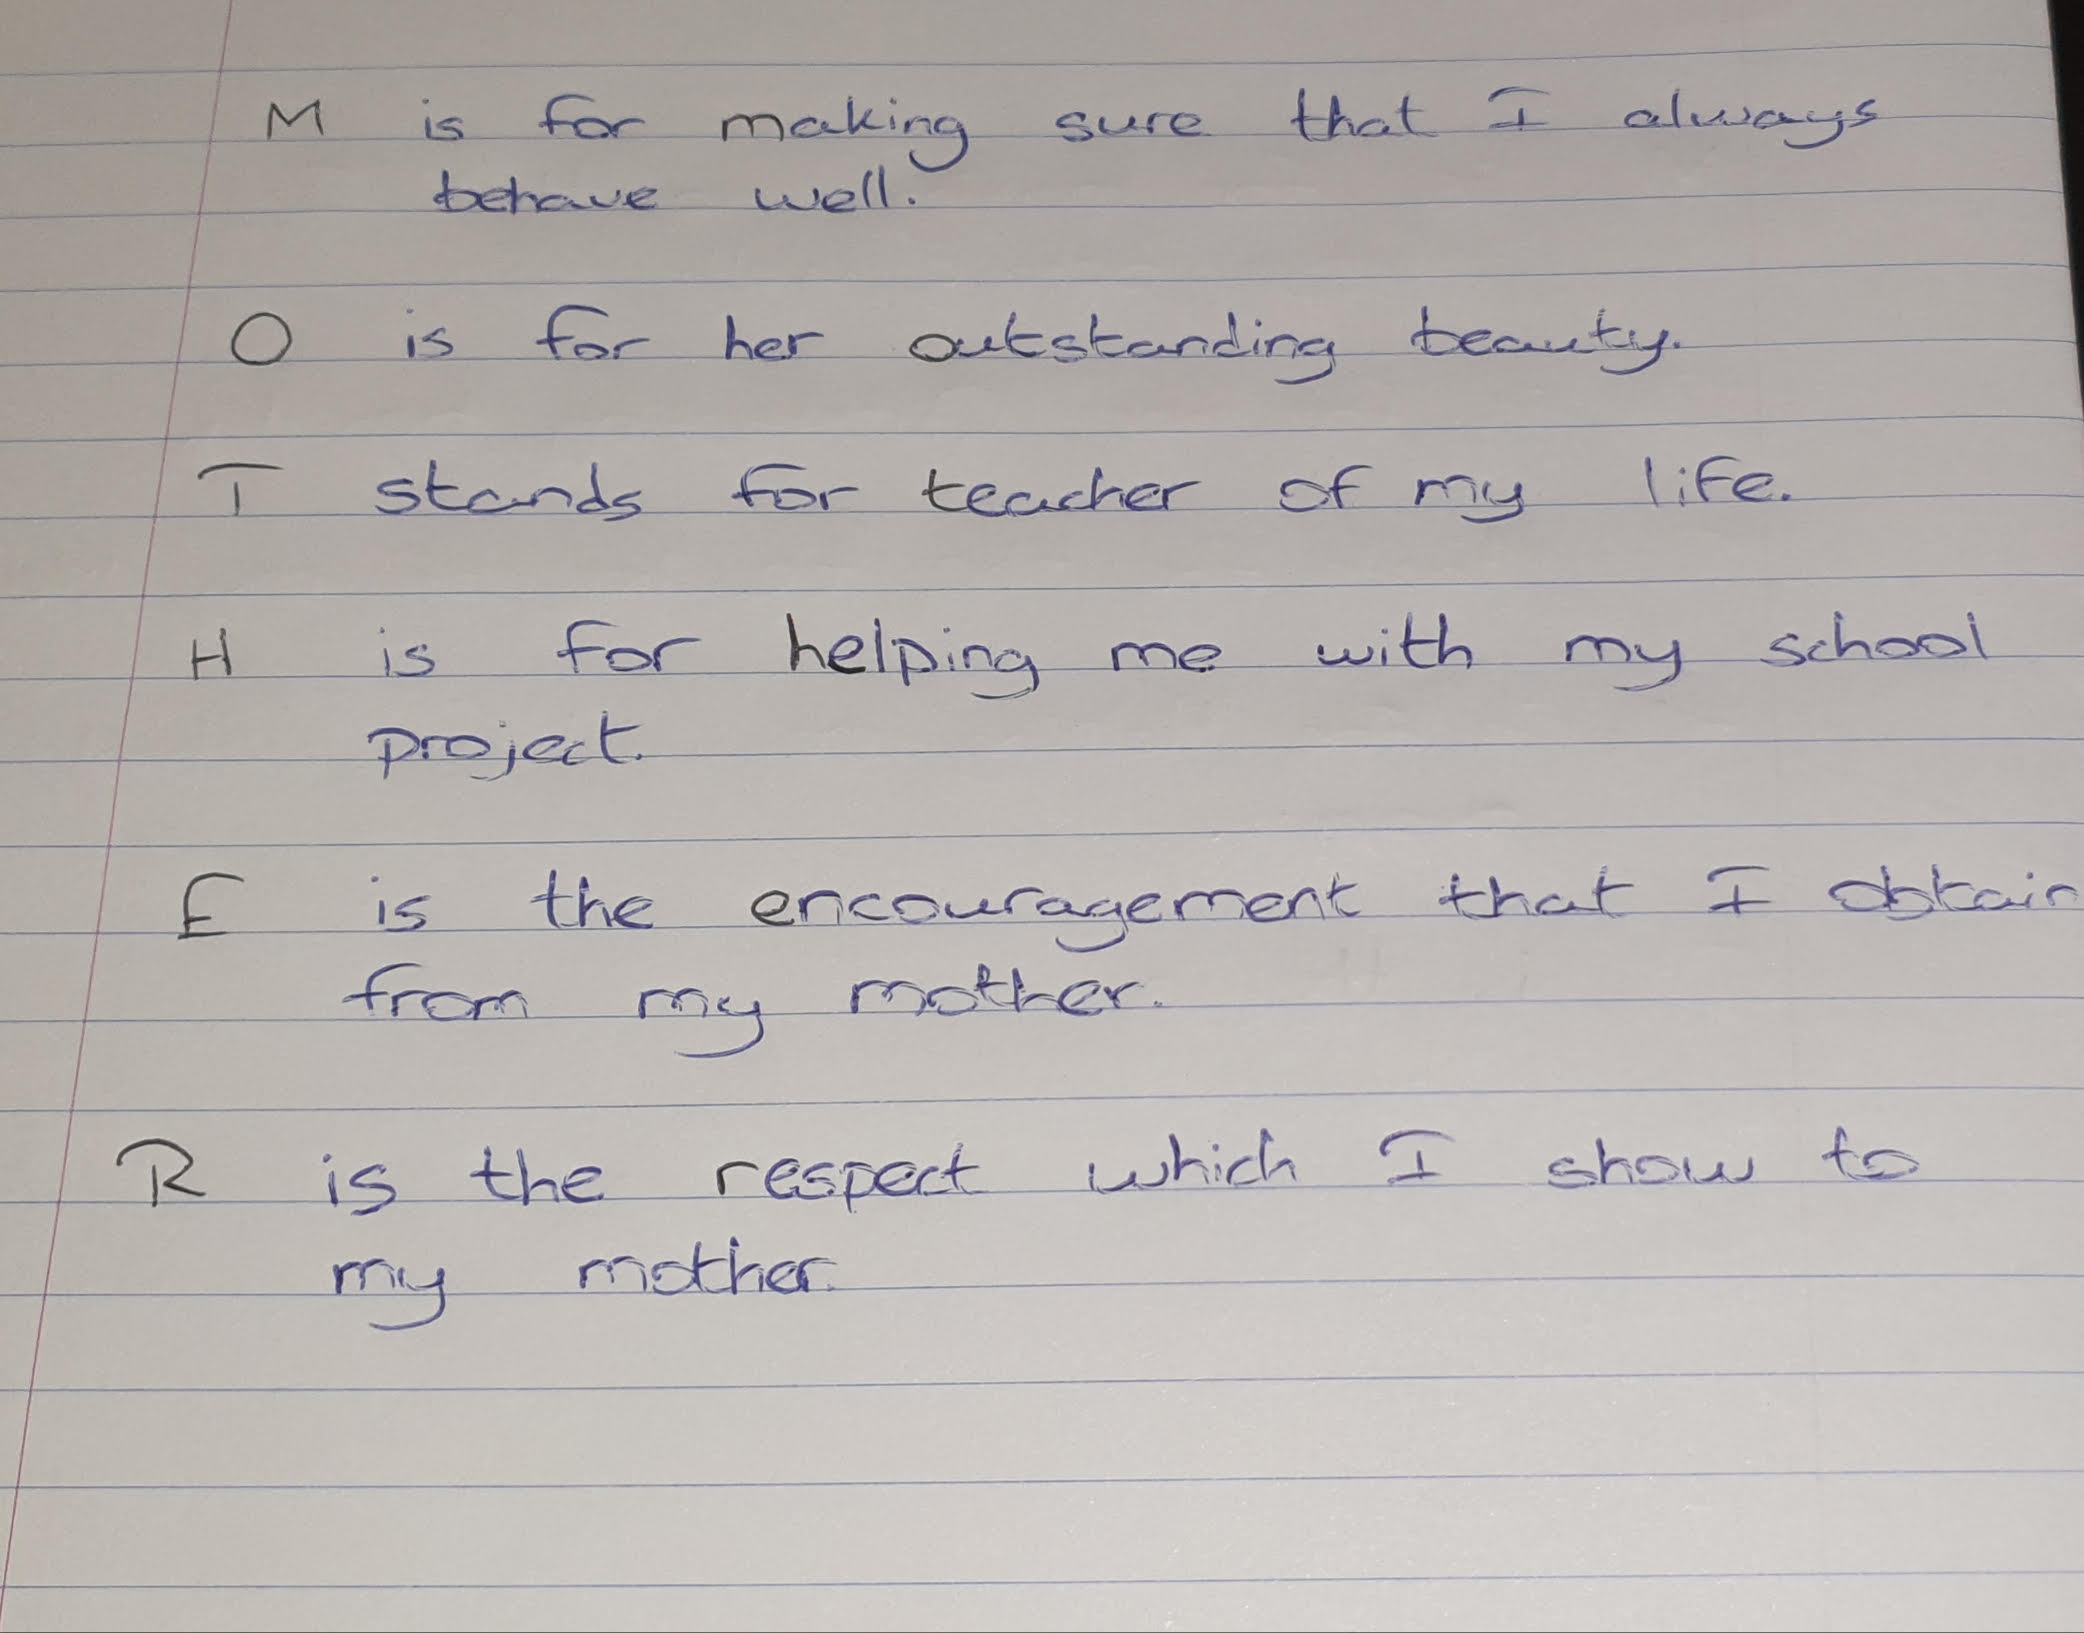 M is for making sure that I always
behave well.
O is for her outstanding beauty.
T stands for teacher of my life.
H is for helping me with my school
project.
E is the encouragement that I obtain
from my mother.
R is the respect which I show to
my mother.